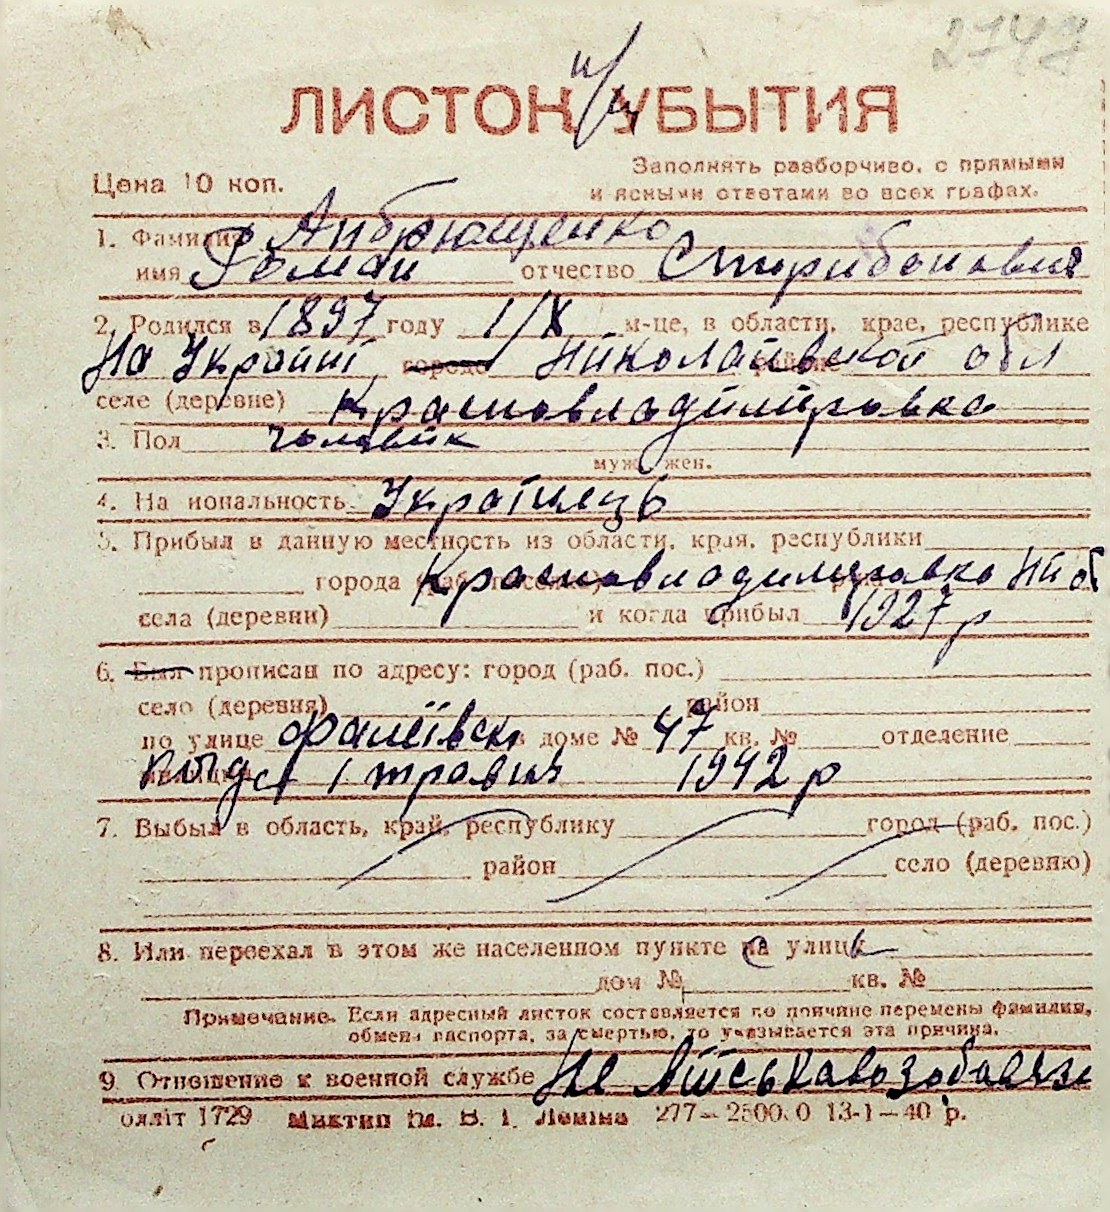 2747
ЛИСТОК УБЫТИЯ
Цена 10 коп.
Заполнять разборчиво, с прямыми
и ясными ответами во всех графах.
1. Фамилия Андрющенко
имя Роман отчество
2. Родился в 1897 году 1/X м-це, в области, крае, республике
На Україні, городе Николаївской обл
селе (деревне) Красновладимировка
3. Пол чоловік
муж. жен.
4. Национальность Українець
5. Прибыл в данную местность из области, края, республики
города (раб. поселка) Красновладимировка
села (деревни) и когда прибыл 1927 р
6. Был прописан по адресу: город (раб. пос.)
село (деревня) район
по улице Фалеївск в доме № 47 кв. № отделение
1 травня 1942 р
7. Выбыл в область, край, республику город (раб. пос.)
район село (деревню)
8. Или переехал в этом же населенном пункте на улицу
дом № кв. №
Примечание. Если адресный листок составляется по причине перемены фамилии,
обмена паспорта, за смертью, то указывается эта причина.
9. Отношение к военной службе Не
1729 Миктип ім. В. І. Леніна 277—25000 13-1—40 р.